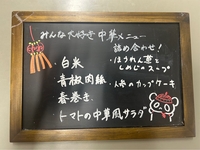 みんな大好き 中華メニュー
詰め合わせ!
・白米
・青椒肉絲
・春巻き
・トマトの中華風サラダ
・ほうれん草と
しめじのスープ
・人参のカップケーキ